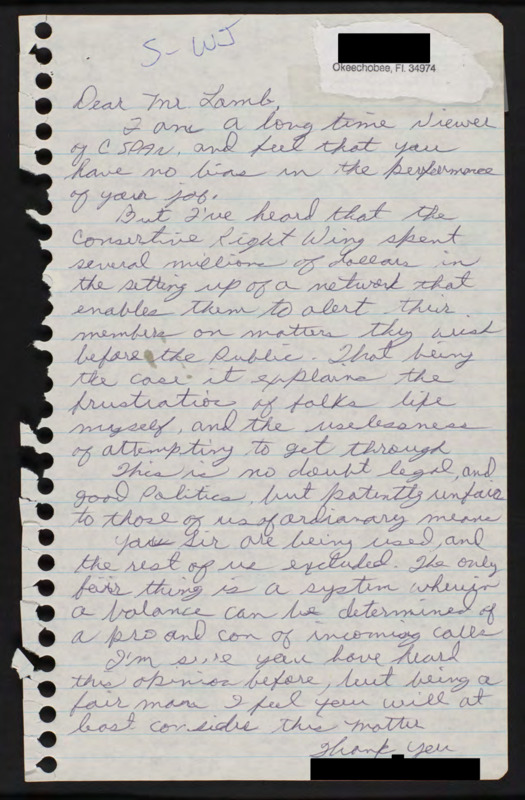 S- WJ
Okeechobee, Fl. 34974
Dear Mr. Lamb,
I am a long time viewer
of CSPAN, and feel that you
have no bias in the performance
of your job.
But I've heard that the
Consertive Right Wing spent
several millions of Dollars in
the setting up of a network that
enables them to alert their
members on matters they wish
before the Public. That being
the case it explains the
frustration of folks like
myself, and the uselessness
of attempting to get through
This is no doubt legal, and
good Politics, but patently unfair
to those of us of ordianary means
You Sir are being used, and
the rest of us excluded. The only
fair thing is a system wherein
a balance can be determined of
a pro and con of incoming calls
I'm sure you have heard
this opinion before, but being a
fair man I feel you will at
least consider this matter
Thank you